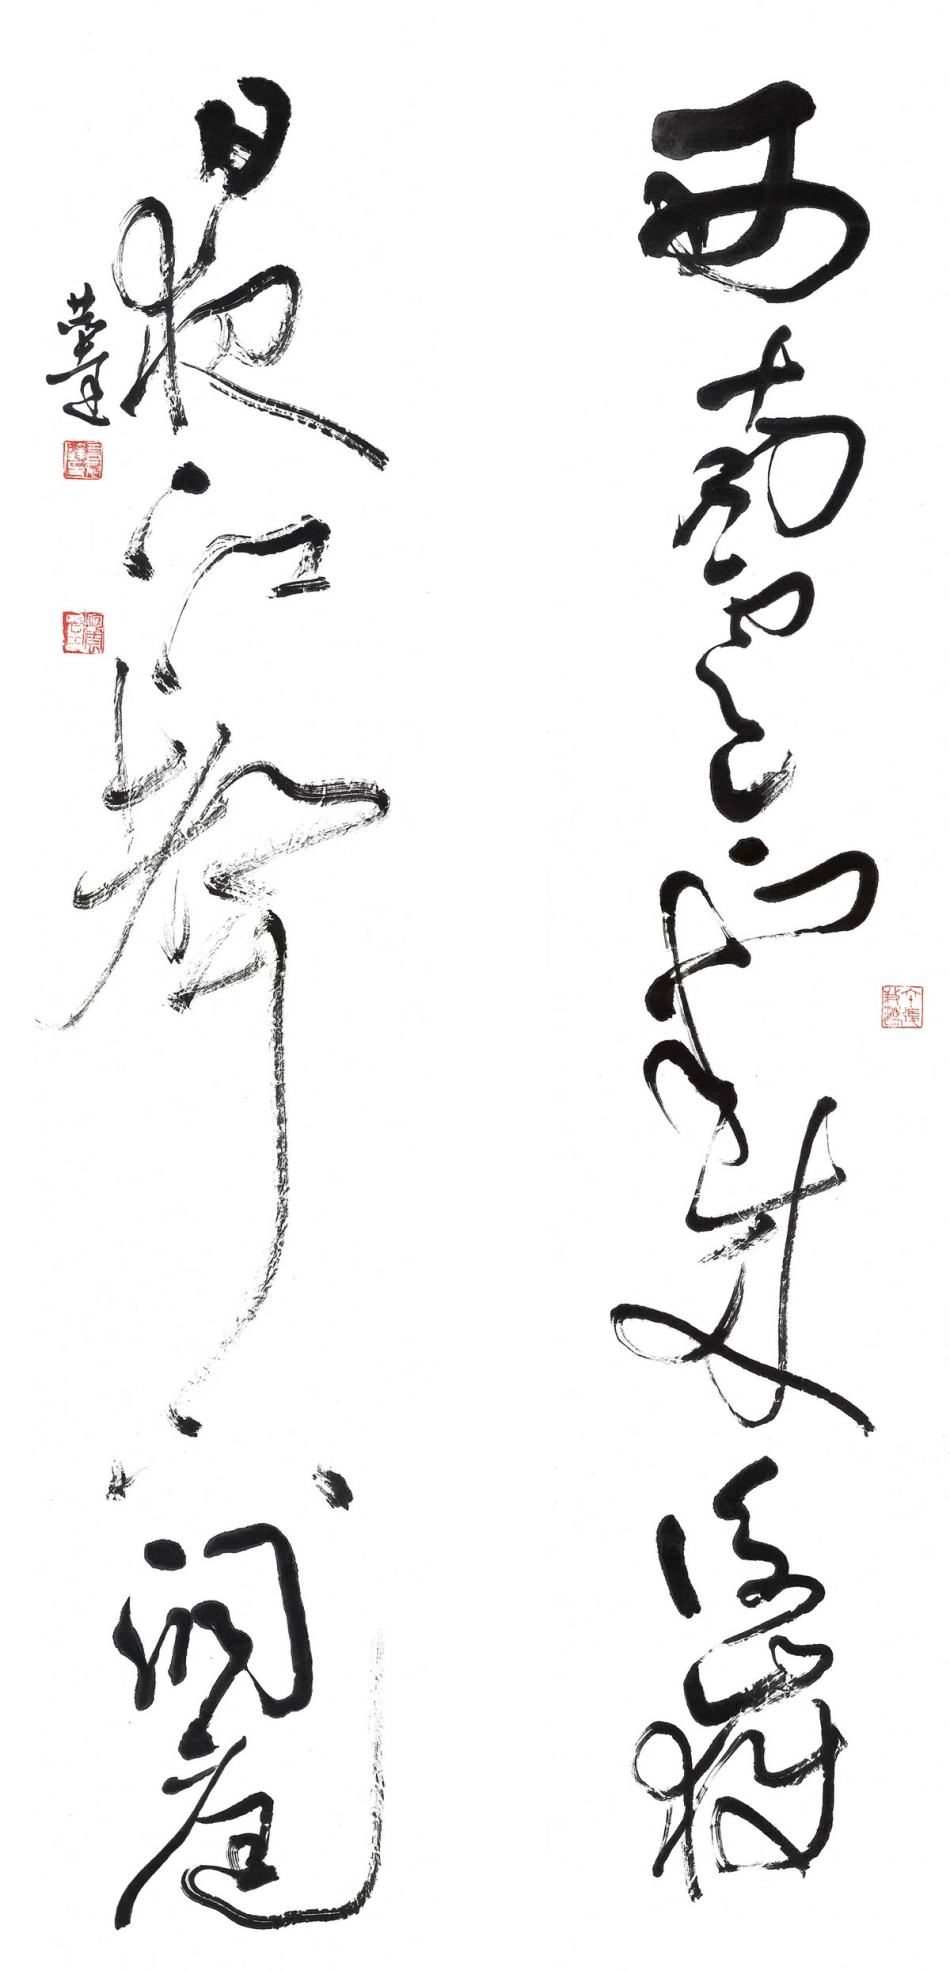 西南雲氣來衡嶽
日夜江聲下洞庭